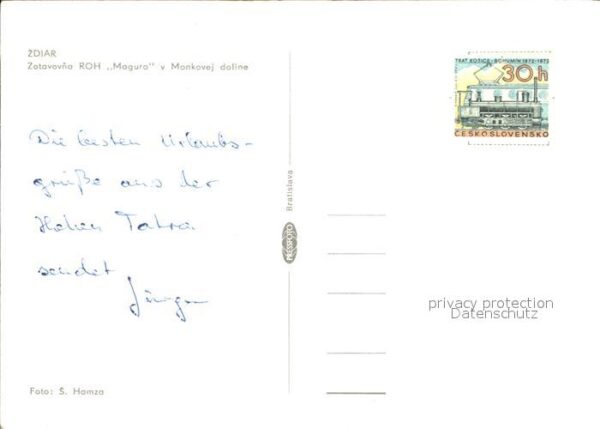 ŽDIAR
Zotavovňa ROH „Magura" v Monkovej doline
TRAŤ KOŠICE - BOHUMÍN 1872-1972
30h
ČESKOSLOVENSKO
Die besten Urlaubs-
grüße aus der
Hohen Tatra
sendet
Jürgen
Bratislava
PRESSFOTO
privacy protection
Datenschutz
Foto: Š. Hamza